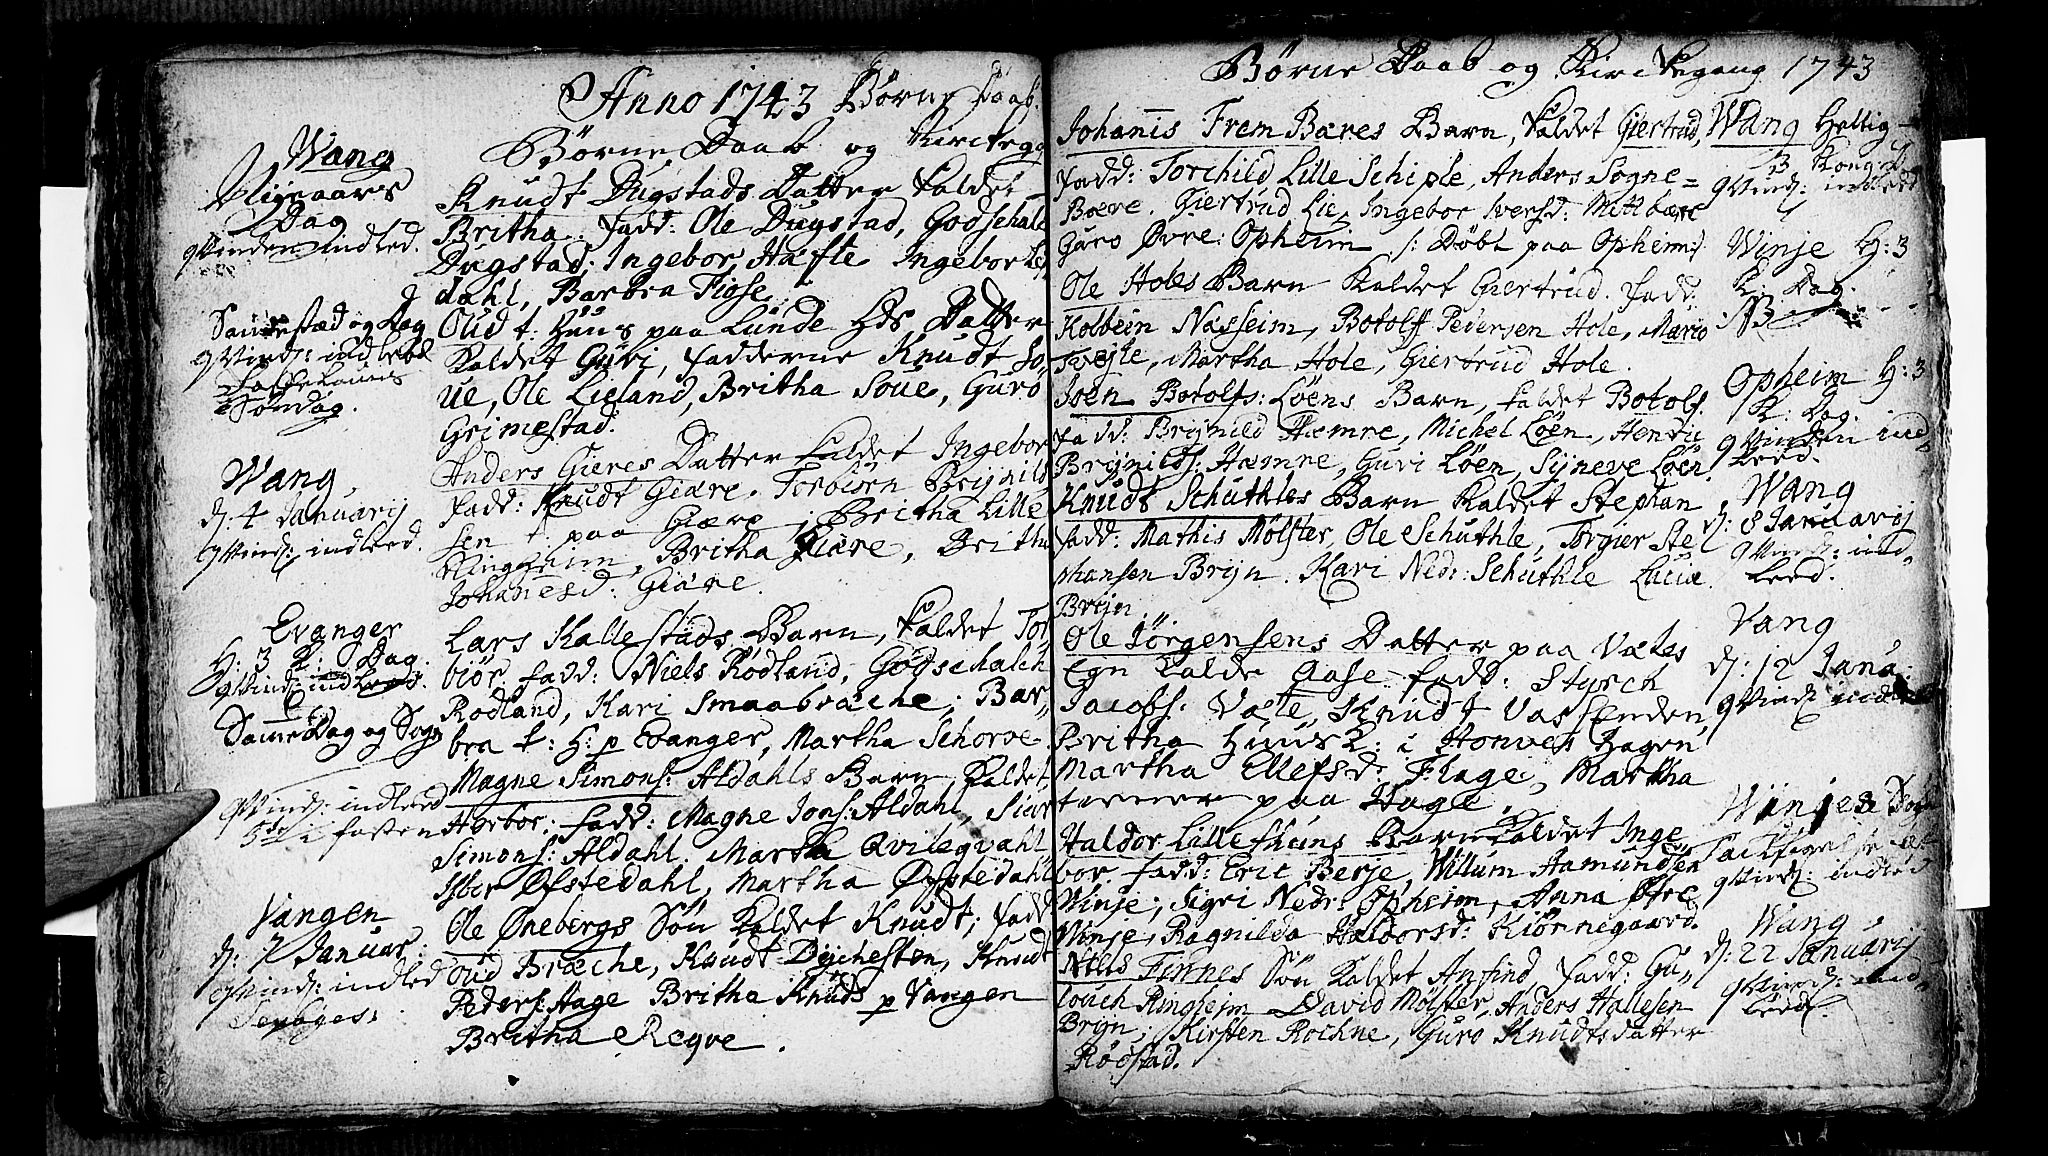 Anno 1743 Børne Daab.
Børne Daab og Kirckeg
Wang
Nÿtaars
Dag
Qvinden indled.
Knudt Dugstads Datter kaldet
Britha. Fadd: Ole Dugstad, Godschalc
Dugstad, Ingebor Hæfte Ingebor
dahl, Barbra Fiose.
Samestæd og Dag
Qvind: indledt
Søndag.
Oud t. Huus paa Lunde Hds Datter
kaldet Guri, Fadderne Knudt So-
ue, Ole Lieland, Britha Soue, Guro
Grimestad.
Wang
d: 4 Januarij
Qvind: indleed.
Anders Gieres Datter kaldet Ingebor
Fadd: Knudt Giære. Torbiørn Brijnild
sen t. paa Giære; Britha Lille
Ringheim, Britha Giære, Britha
Johanesd: Giære.
Evanger
H: 3 K: Dag.
Qvind: indleed.
Lars Kallestads Barn, kaldet Tor
biør Fadd: Niels Rødland, Godschalck
Rødland, Kari Smaabræche; Bar,
bra t: H: p Evanger, Martha Schorve
Same Dag og Sogn
Qvind: indleed
5te i fasten
Magne Simons: Aldahls Barn kaldet,
Herbor; Fadd: Magne Jons: Aldahl, Siur
Simons: Aldahl. Martha Qvilegvahl
Isber Øfstedahl, Martha Øfstedahl
Vangen
d: 7 Januar:
Qvind: indled
Ole Ønebergs Søn kaldet Knudt; Fadd
Oud Bræche, Knudt Dÿchesten, Knudt
Peders: Hage Britha Knuds p Vangen
Britha Reqve.
Børne Daab og Kirckegang 1743
Johanis Frem Bæres Barn, kaldet Giertrud,
Fadd: Torchild Lille Schiple, Anders Sogne=
Boere. Giertrud Lie, Ingebor Iversd: Mittbære
Guro Øvre: Opheim /: Døbt paa Opheim:/
Wang Hellig
3 Kong: D
Qvind: indleed
Ole Holes Barn kaldet Giertrud. Fadd:
Kolbein Nasheim, Botolff Pedersen Hole, Mario
Tvejte, Martha Hole, Giertrud Hole.
Winje H: 3
K: Dag.
NB
Joen Botolfs: Løens Barn, kaldet Botolf.
Fadd: Brijnild Hæmre, Michel Løen, Henric
Brijnilds: Hæmre, Guri Løen, Sijneve Løen
Opheim H: 3
K: Dag.
Qvinden ind-
leed.
Knudt Schuthles Barn kaldet Stephan
Fadd: Mathis Mølster, Ole Schuthle, Torgier Ste
phansen Brijn. Kari Nedr: Schuthle Luciæ
Brijn
Wang
d: 8 Januarij
Qvind: ind-
leed.
Ole Jørgensens Datter paa Vætes
Egn kalde Aase Fadd: Styrck
Jacobs: Væte, Knudt Vassenden,
Britha Huusk: i Honves Hagen
Martha Ellefsd: Flage, Martha
tærner paa Hage.
Vang
d: 12 Janu:
Qvind: indleed
Haldor Lillethuns Barn kaldet Inge,
bor. Fadd: Eric Berje, Willum Aamundsen
Winje; Sigri Nedr: Opheim, Anna Øfre
Winje, Ragnilda Haldorsd: Kiønnegaard.
Winje
Qvind: indled
Nills Finnes Søn kaldet Anfind, Fadd: Gu,
louch Ringheim David Mølster, Anders Hallesen
Brijn; Kirsten Rochne, Guro Knudts datter
Rødstad.
Wang
d: 22 Januarij
Qvind: ind-
leed.